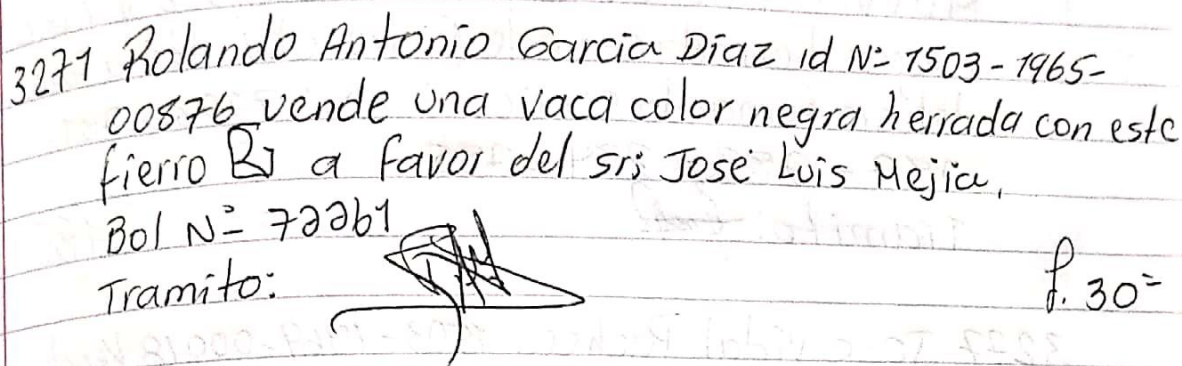 3271 Rolando Antonio Garcia Diaz id Nº 1503-1965-
00876 vende una vaca color negra herrada con este
fierro a favor del sr: José Luis Mejia,
Bol Nº 72261
Tramito:
f. 30=